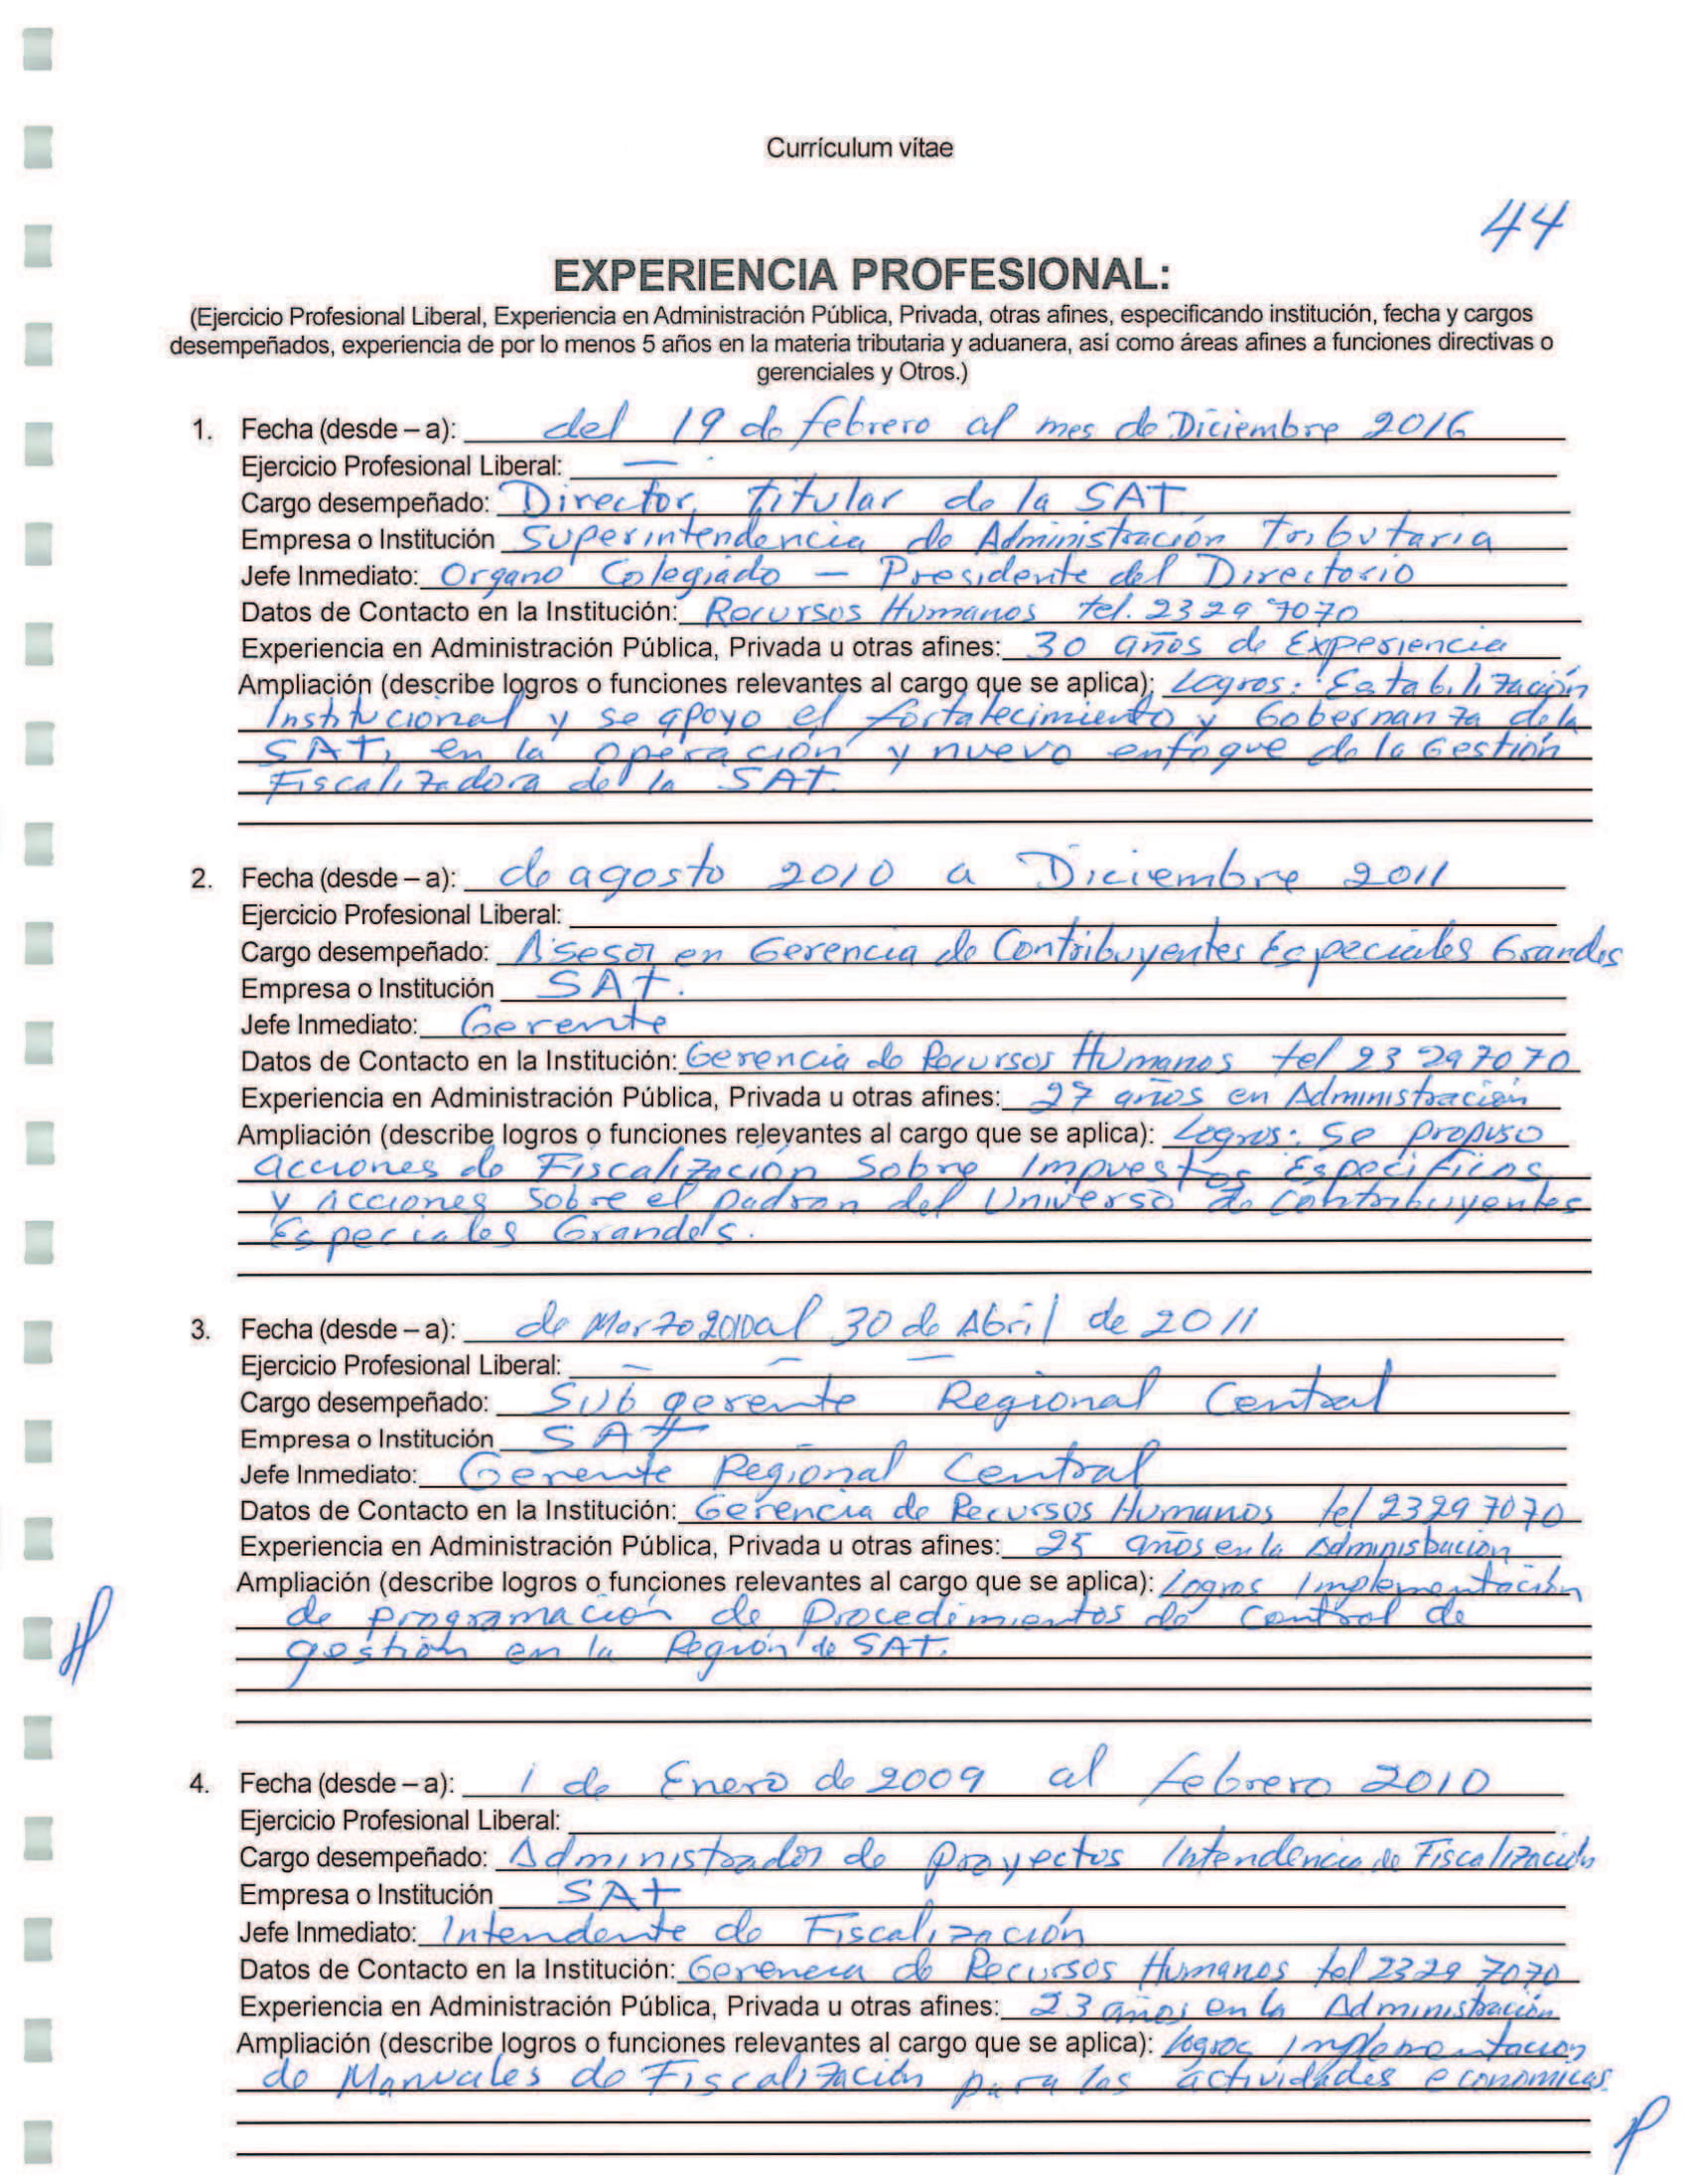 Currículum vitae
44
EXPERIENCIA PROFESIONAL:
(Ejercicio Profesional Liberal, Experiencia en Administración Pública, Privada, otras afines, especificando institución, fecha y cargos
desempeñados, experiencia de por lo menos 5 años en la materia tributaria y aduanera, así como áreas afines a funciones directivas o
gerenciales y Otros.)
1. Fecha (desde – a): del 19 de febrero al mes de Diciembre 2016
Ejercicio Profesional Liberal: —.
Cargo desempeñado: Director titular de la SAT
Empresa o Institución Superintendencia de Administración Tributaria
Jefe Inmediato: Organo Colegiado — Presidente del Directorio
Datos de Contacto en la Institución: Recursos Humanos tel. 23297070
Experiencia en Administración Pública, Privada u otras afines: 30 años de Experiencia
Ampliación (describe logros o funciones relevantes al cargo que se aplica): Logros: Estabilización
Institucional y se apoyo el fortalecimiento y Gobernanza de la
SAT, en la operación y nuevo enfoque de la Gestión
Fiscalizadora de la SAT.
2. Fecha (desde – a): de agosto 2010 a Diciembre 2011
Ejercicio Profesional Liberal:
Cargo desempeñado: Asesor en Gerencia de Contribuyentes Especiales Grandes
Empresa o Institución SAT.
Jefe Inmediato: Gerente
Datos de Contacto en la Institución: Gerencia de Recursos Humanos tel 23297070
Experiencia en Administración Pública, Privada u otras afines: 27 años en Administración
Ampliación (describe logros o funciones relevantes al cargo que se aplica): Logros: Se propuso
acciones de Fiscalización Sobre Impuestos Especificos
y acciones sobre el padron del Universo de contribuyentes
Especiales Grandes.
3. Fecha (desde – a): de Marzo 2010 al 30 de Abril de 2011
Ejercicio Profesional Liberal: — — —
Cargo desempeñado: Sub gerente Regional Central
Empresa o Institución SAT
Jefe Inmediato: Gerente Regional Central
Datos de Contacto en la Institución: Gerencia de Recursos Humanos tel 23297070
Experiencia en Administración Pública, Privada u otras afines: 25 años en la Administración
Ampliación (describe logros o funciones relevantes al cargo que se aplica): Logros Implementación
de programación de Procedimientos de Control de
gestión en la Región de SAT.
4. Fecha (desde – a): 1 de Enero de 2009 al febrero 2010
Ejercicio Profesional Liberal:
Cargo desempeñado: Administrador de proyectos Intendencia de Fiscalización
Empresa o Institución SAT
Jefe Inmediato: Intendente de Fiscalización
Datos de Contacto en la Institución: Gerencia de Recursos Humanos tel 2329 7070
Experiencia en Administración Pública, Privada u otras afines: 23 años en la Administración
Ampliación (describe logros o funciones relevantes al cargo que se aplica): logros Implementación
de Manuales de Fiscalización para las actividades economicas.